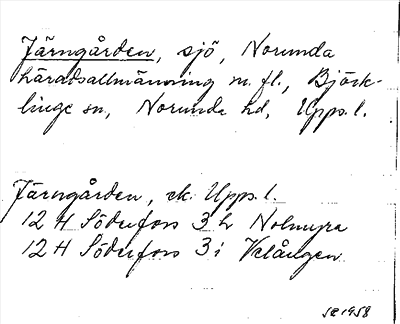 Järngården, sjö, Norunda
häradsallmänning m. fl., Björk-
linge sn, Norunda hd, Upps. l.
Järngården, ek. Upps. l.
12 H Söderfors 3 h Nolmyra
12 H Söderfors 3 i Velången
SE 1958